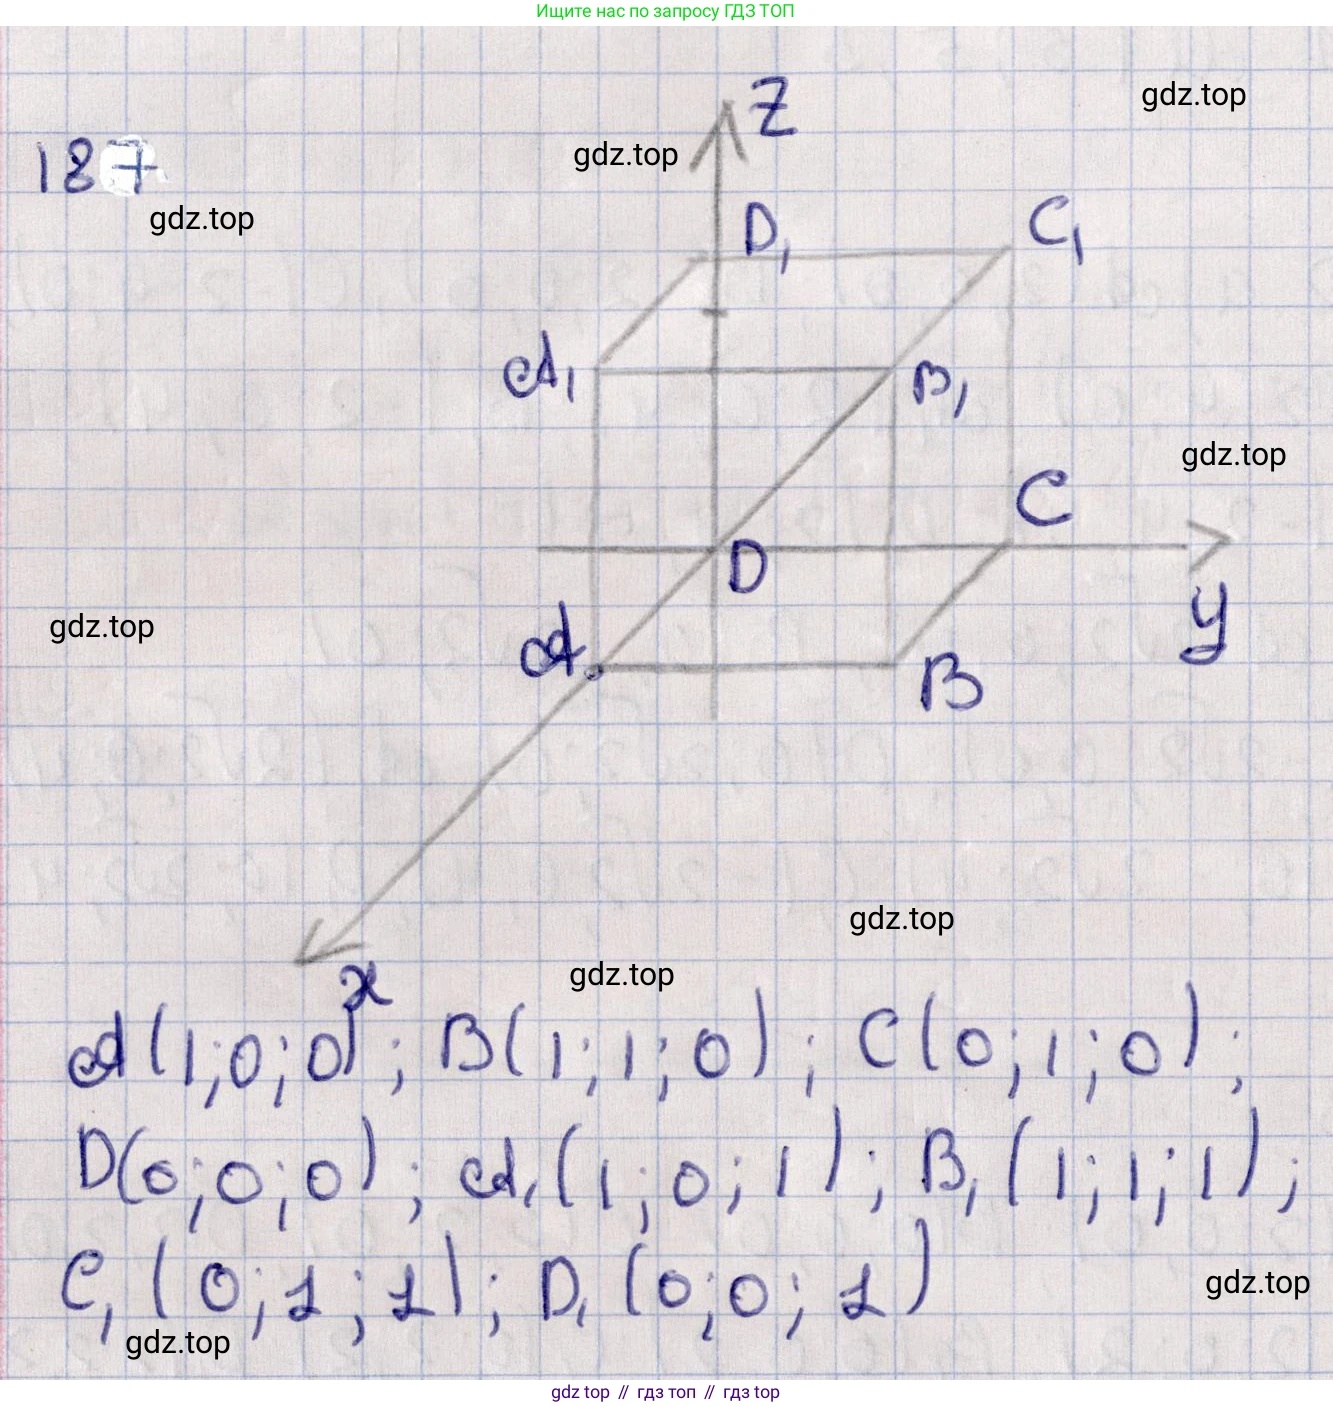 Ищите нас по запросу ГДЗ ТОП
z
gdz.top
gdz.top
187
gdz.top
D₁
C₁
A₁
B₁
gdz.top
C
D
gdz.top
y
A
B
gdz.top
gdz.top
x
A(1;0;0); B(1;1;0); C(0;1;0);
D(0;0;0); A₁(1;0;1); B₁(1;1;1);
C₁(0;1;1); D₁(0;0;1)
gdz.top
gdz.top
gdz top // гдз топ // гдз top